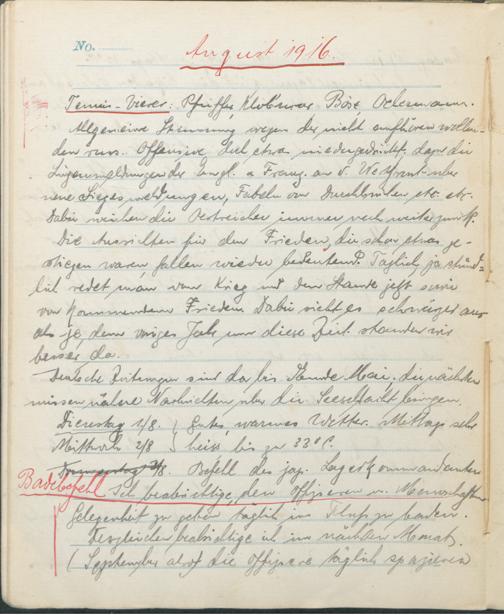 No.
August 1916.
Tennis-Vierer: Pfeiffer, Klobucar, Böse, Ockermann.
Allgemeine Stimmung wegen der nicht aufhören wollen-
den russ. Offensive daher etwas niedergedrückt, dazu die
Lügenmeldungen der Engl. u. Franz. an d. Westfront über
neue Siegesmeldungen, Fabeln von Durchbrüchen etc. etc.
Dabei weichen die Oestreicher immer noch weiter zurück.
Die Aussichten für den Frieden, die schon etwas ge-
stiegen waren, fallen wieder bedeutend. Täglich, ja stünd-
lich redet man vom Krieg und dem Stande jetzt sowie
vom kommenden Frieden. Dabei sieht es schwieriger aus
als je, denn voriges Jahr um diese Zeit standen wir
besser da.
Deutsche Zeitungen sind da bis Ende Mai. die nächsten
müssen nähere Nachrichten über die Seeschlacht bringen.
Dienstag 1/8. Gutes, warmes Wetter. Mittags sehr
Mittwoch 2/8 heiss bis zu 33° C.
Donnerstag 3/8. Befehl des jap. Lagerkommandanten
Badebefehl Ich beabsichtige, den Offizieren u. Mannschaften
Gelegenheit zu geben täglich im Fluss zu baden.
Desgleichen beabsichtige ich im nächsten Monat
(September) die Offiziere täglich spazieren